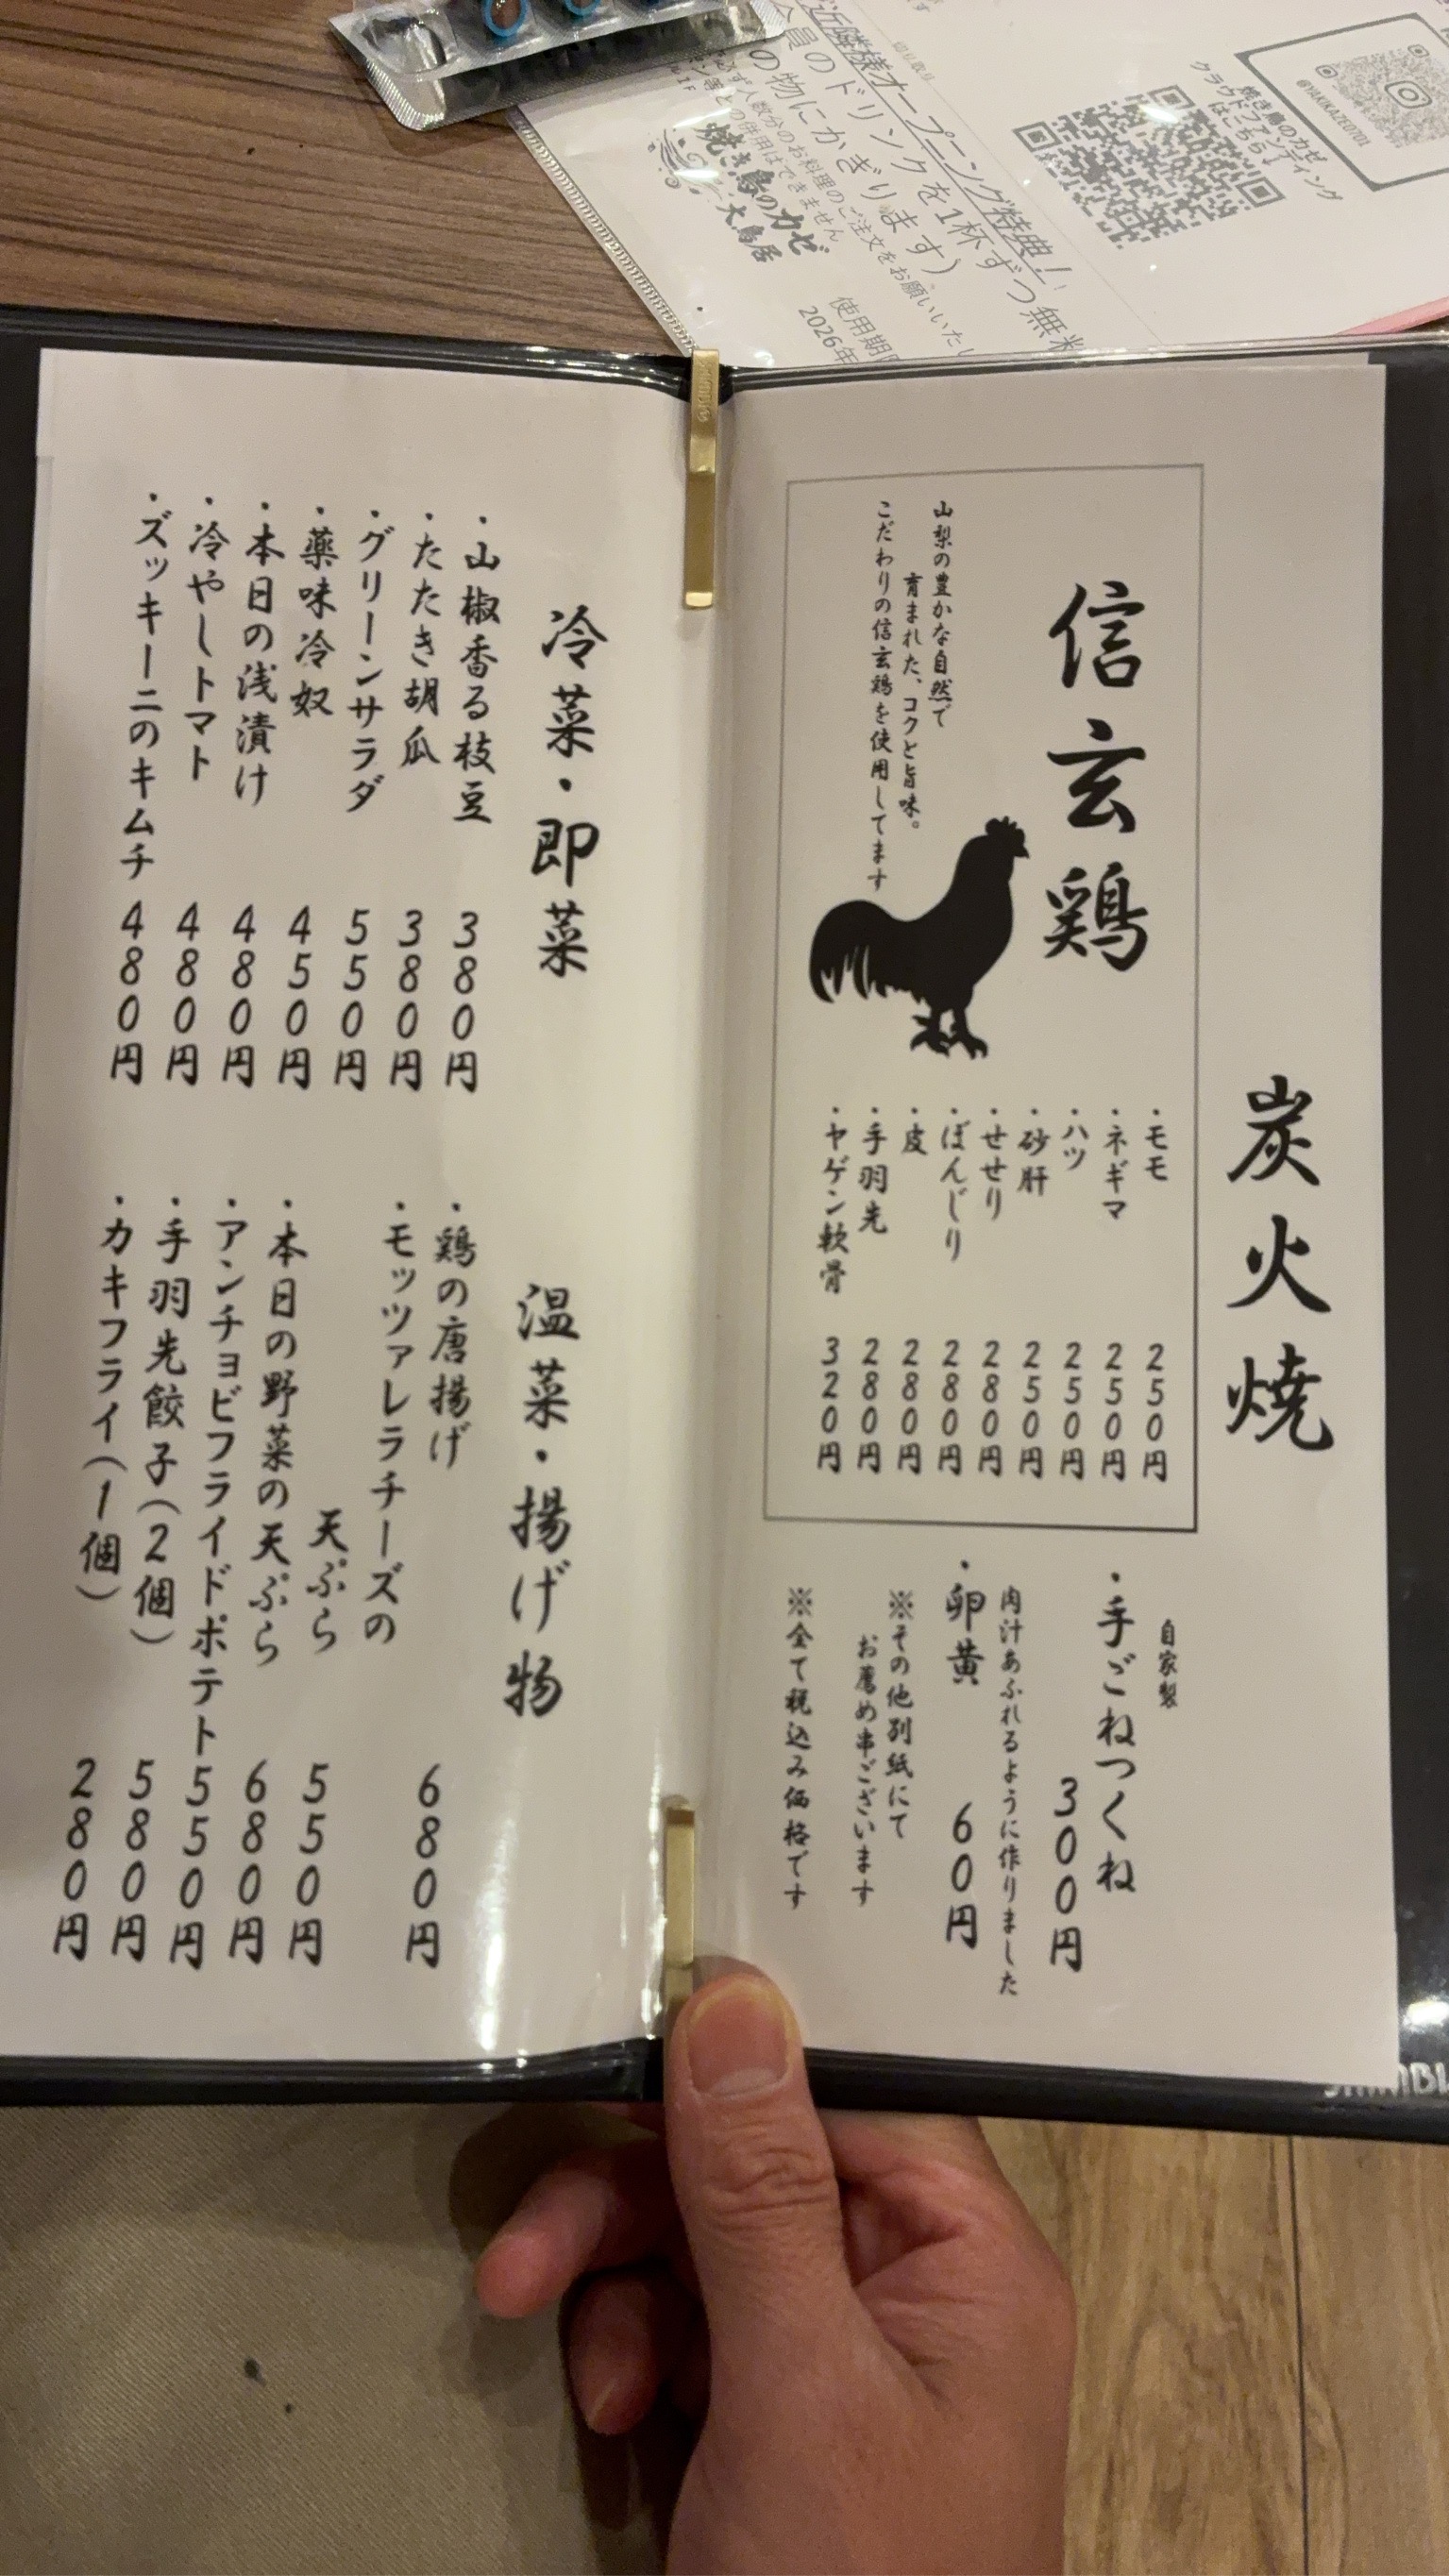 近隣様オープニング特典！
会員のドリンクを1杯ずつ無料
の物にかぎります）
必ず人数分のお料理のご注文をお願いいたし
等との併用はできません
焼き鳥のカゼ
大鳥居
使用期限
2026年
焼き鳥のカゼ
クラウドファンディング
はこちら↓
@YAKIKAZE0701
炭火焼
信玄鶏
山梨の豊かな自然で
育まれた、コクと旨味。
こだわりの信玄鶏を使用してます
・モモ 250円
・ネギマ 250円
・ハツ 250円
・砂肝 250円
・せせり 280円
・ぼんじり 280円
・皮 280円
・手羽先 280円
・ヤゲン軟骨 320円
自家製
・手ごねつくね
300円
肉汁あふれるように作りました
・卵黄 60円
※その他別紙にて
お薦め串ございます
※全て税込み価格です
冷菜・即菜
・山椒香る枝豆 380円
・たたき胡瓜 380円
・グリーンサラダ 550円
・薬味冷奴 450円
・本日の浅漬け 480円
・冷やしトマト 480円
・ズッキーニのキムチ 480円
温菜・揚げ物
・鶏の唐揚げ 680円
・モッツァレラチーズの
天ぷら 550円
・本日の野菜の天ぷら 680円
・アンチョビフライドポテト 550円
・手羽先餃子（2個） 580円
・カキフライ（1個） 280円